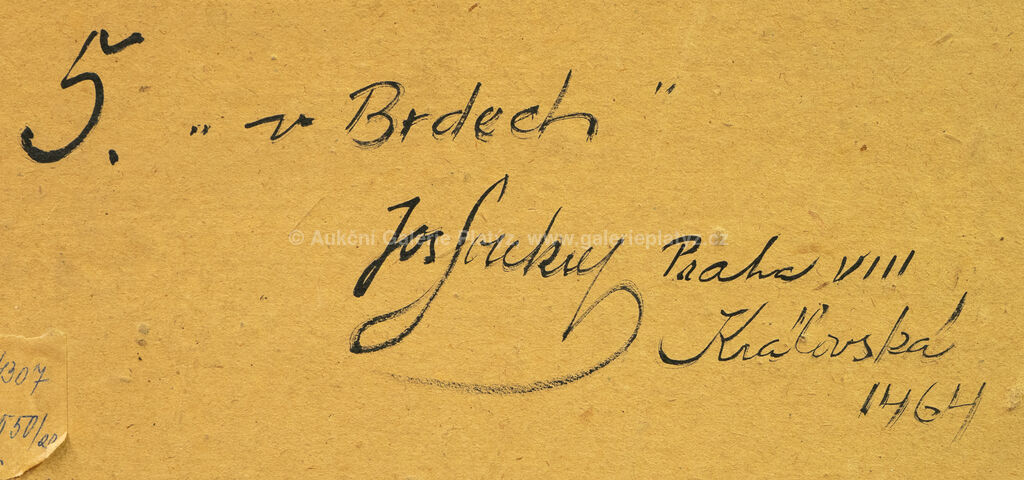 5. „ v Brdech "
Jos Soukup Praha VIII
Královská
1464
© Aukční Galerie Platýz, www.galerieplatyz.cz
307
550/20